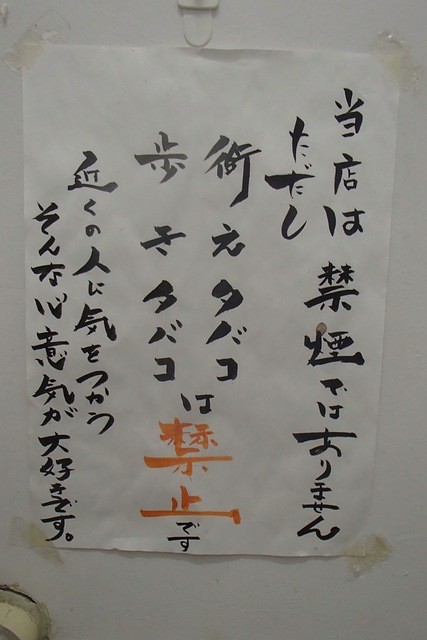 当店は禁煙ではありません
ただし
衔えタバコ
歩きタバコ
は禁止です
近くの人に気をつかう
そんな心意気が大好きです。